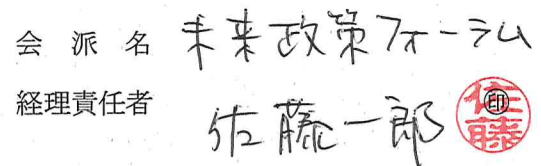 会派名 未来政策フォーラム
経理責任者 佐藤一郎 ㊞ 佐藤